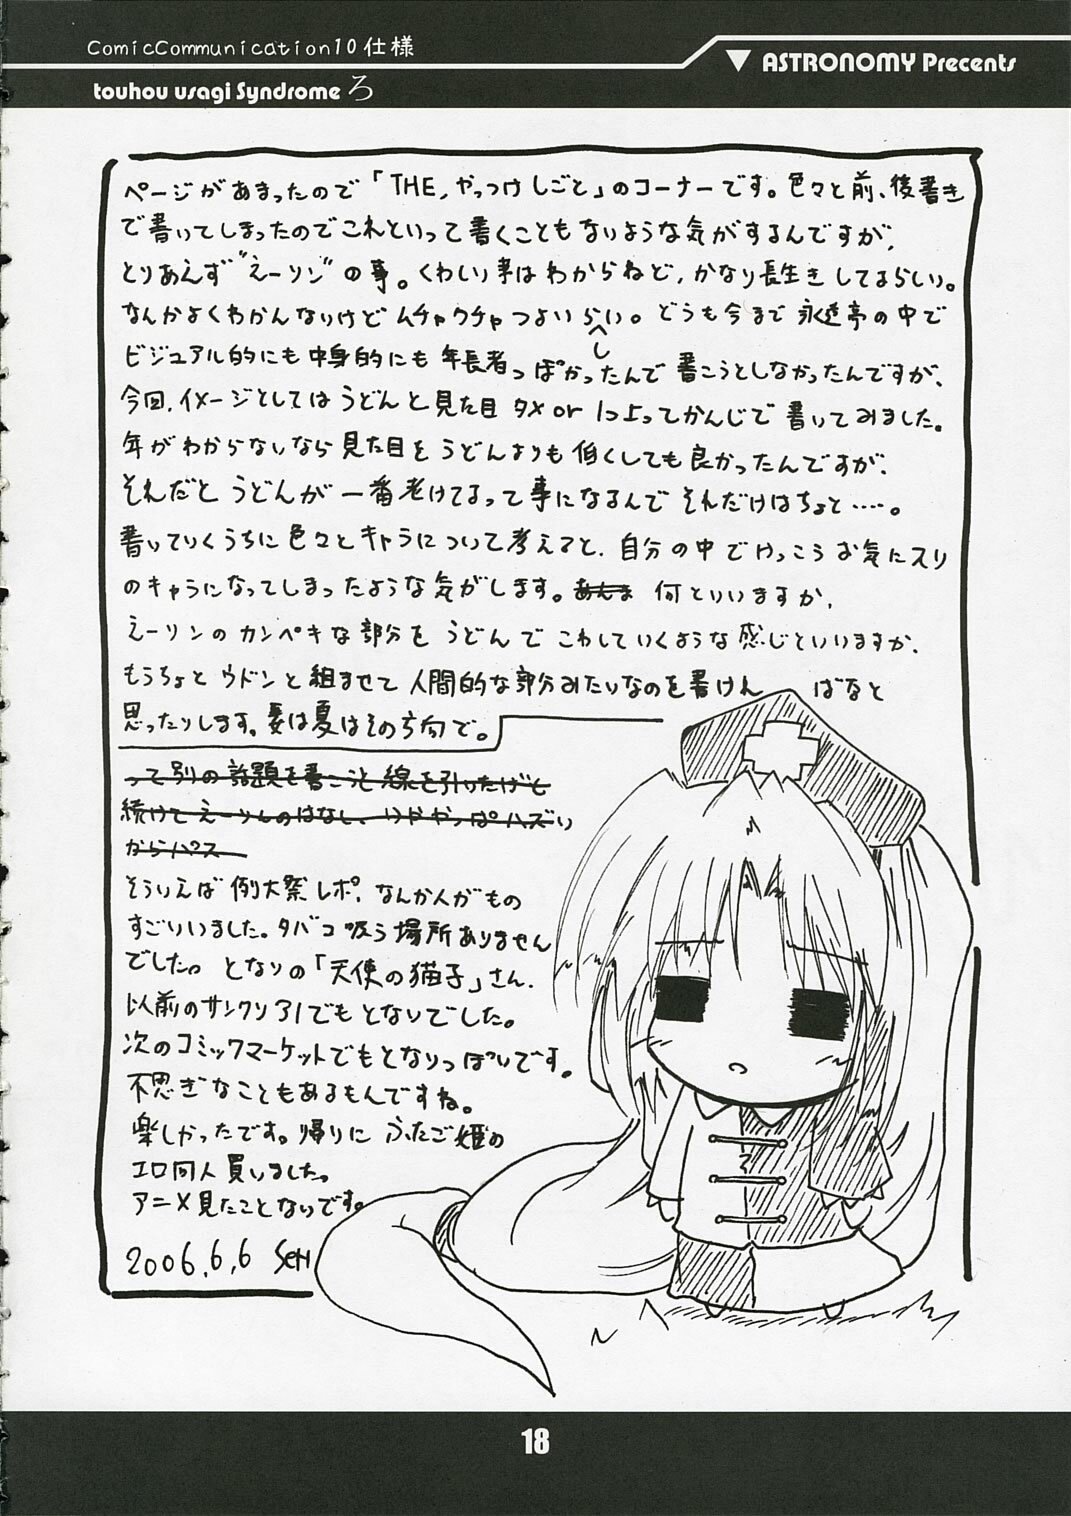 ComicCommunication10仕様
▼ ASTRONOMY Precents
touhou usagi Syndrome ろ
ページがあまったので「THE,やっつけしごと」のコーナーです。色々と前、後書き
で書いてしまったのでこれといって書くこともないような気がするんですが、
とりあえず"えーリン"の事。くわしい事はわからねど、かなり長生きしてるらしい。
なんかよくわかんないけどムチャクチャつよいらしい。どうも今まで永遠亭の中で
ビジュアル的にも中身的にも年長者っぽかったんで書こうとしなかったんですが、
今回、イメージとしてはうどんと見た目タメor1つ上ってかんじで書いてみました。
年がわからないなら見た目をうどんよりも低くしても良かったんですが、
それだとうどんが一番老けてるって事になるんでそれだけはちょと……。
書いていくうちに色々とキャラについて考えてと、自分の中でけっこうお気にスリ
のキャラになってしまったような気がします。何といいますか、
えーリンのカンペキな部分をうどんでこわしていくような感じといいますか、
もうちょとウドンと組ませて人間的な部分みたいなのを書けん ばなと
思ったりします。妻は夏はその方向で。
って別の話題を書こうと線を引いたけど
続けてえーりんのはなし、いややっぱハズい
からパス
そういえば例大祭レポ、なんか人がもの
すごいいました。タバコ吸う場所ありません
でした。となりの「天使の猫子」さん、
以前のサンクリ31でもとなりでした。
次のコミックマーケットでもとなりっぽいです。
不思ぎなこともあるもんですね。
楽しかったです。帰りにふたご姫の
エロ同人買いました。
アニメ見たことないです。
2006.6.6 SEN
18